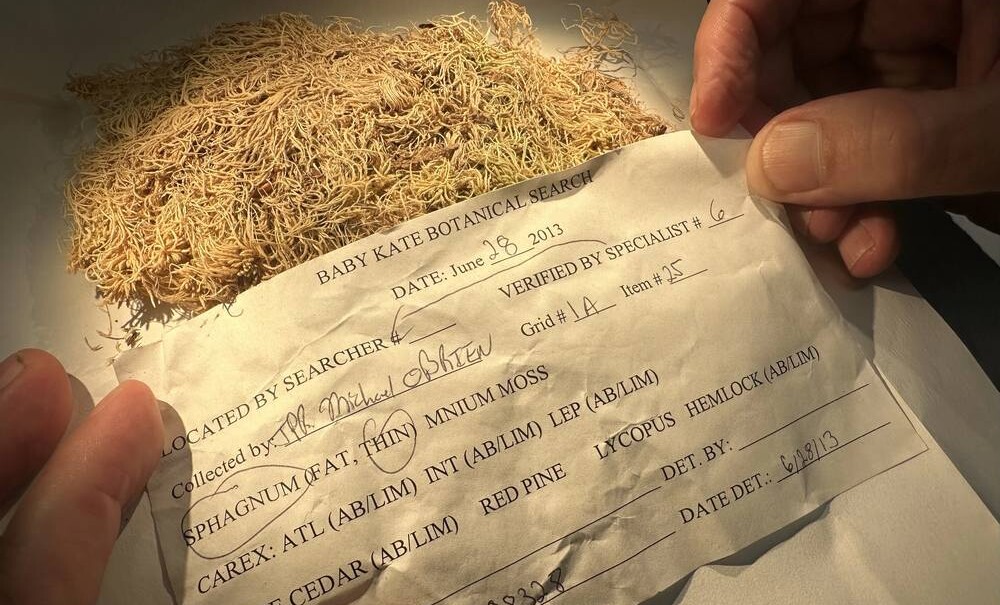 BABY KATE BOTANICAL SEARCH
DATE: June 28 2013
LOCATED BY SEARCHER # VERIFIED BY SPECIALIST # 6
Collected by: TPR Michael OBRIEN Grid # 1A Item # 25
SPHAGNUM (FAT, THIN) MNIUM MOSS
CAREX: ATL (AB/LIM) INT (AB/LIM) LEP (AB/LIM)
CEDAR (AB/LIM) RED PINE LYCOPUS HEMLOCK (AB/LIM)
DET. BY:
DATE DET.: 6/28/13